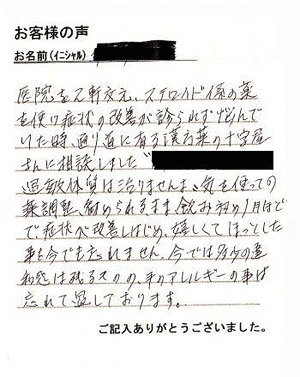 お客様の声
お名前(イニシャル)
医院を2軒次え、ステロイド係の薬
を使い症状の改善が診られず悩んで
いた時、通り道に有る漢方薬の十字屋
さんに相談しました
過敏体質は治りませんよ、気を使っての
薬調整、勧められるまま飲み初め1月ほど
で症状が改善しはじめ、嬉しくてほっとした
事を今でも忘れません。今では多少の違
和感は残るものの、私のアレルギーの事は
忘れて過しております。
ご記入ありがとうございました。